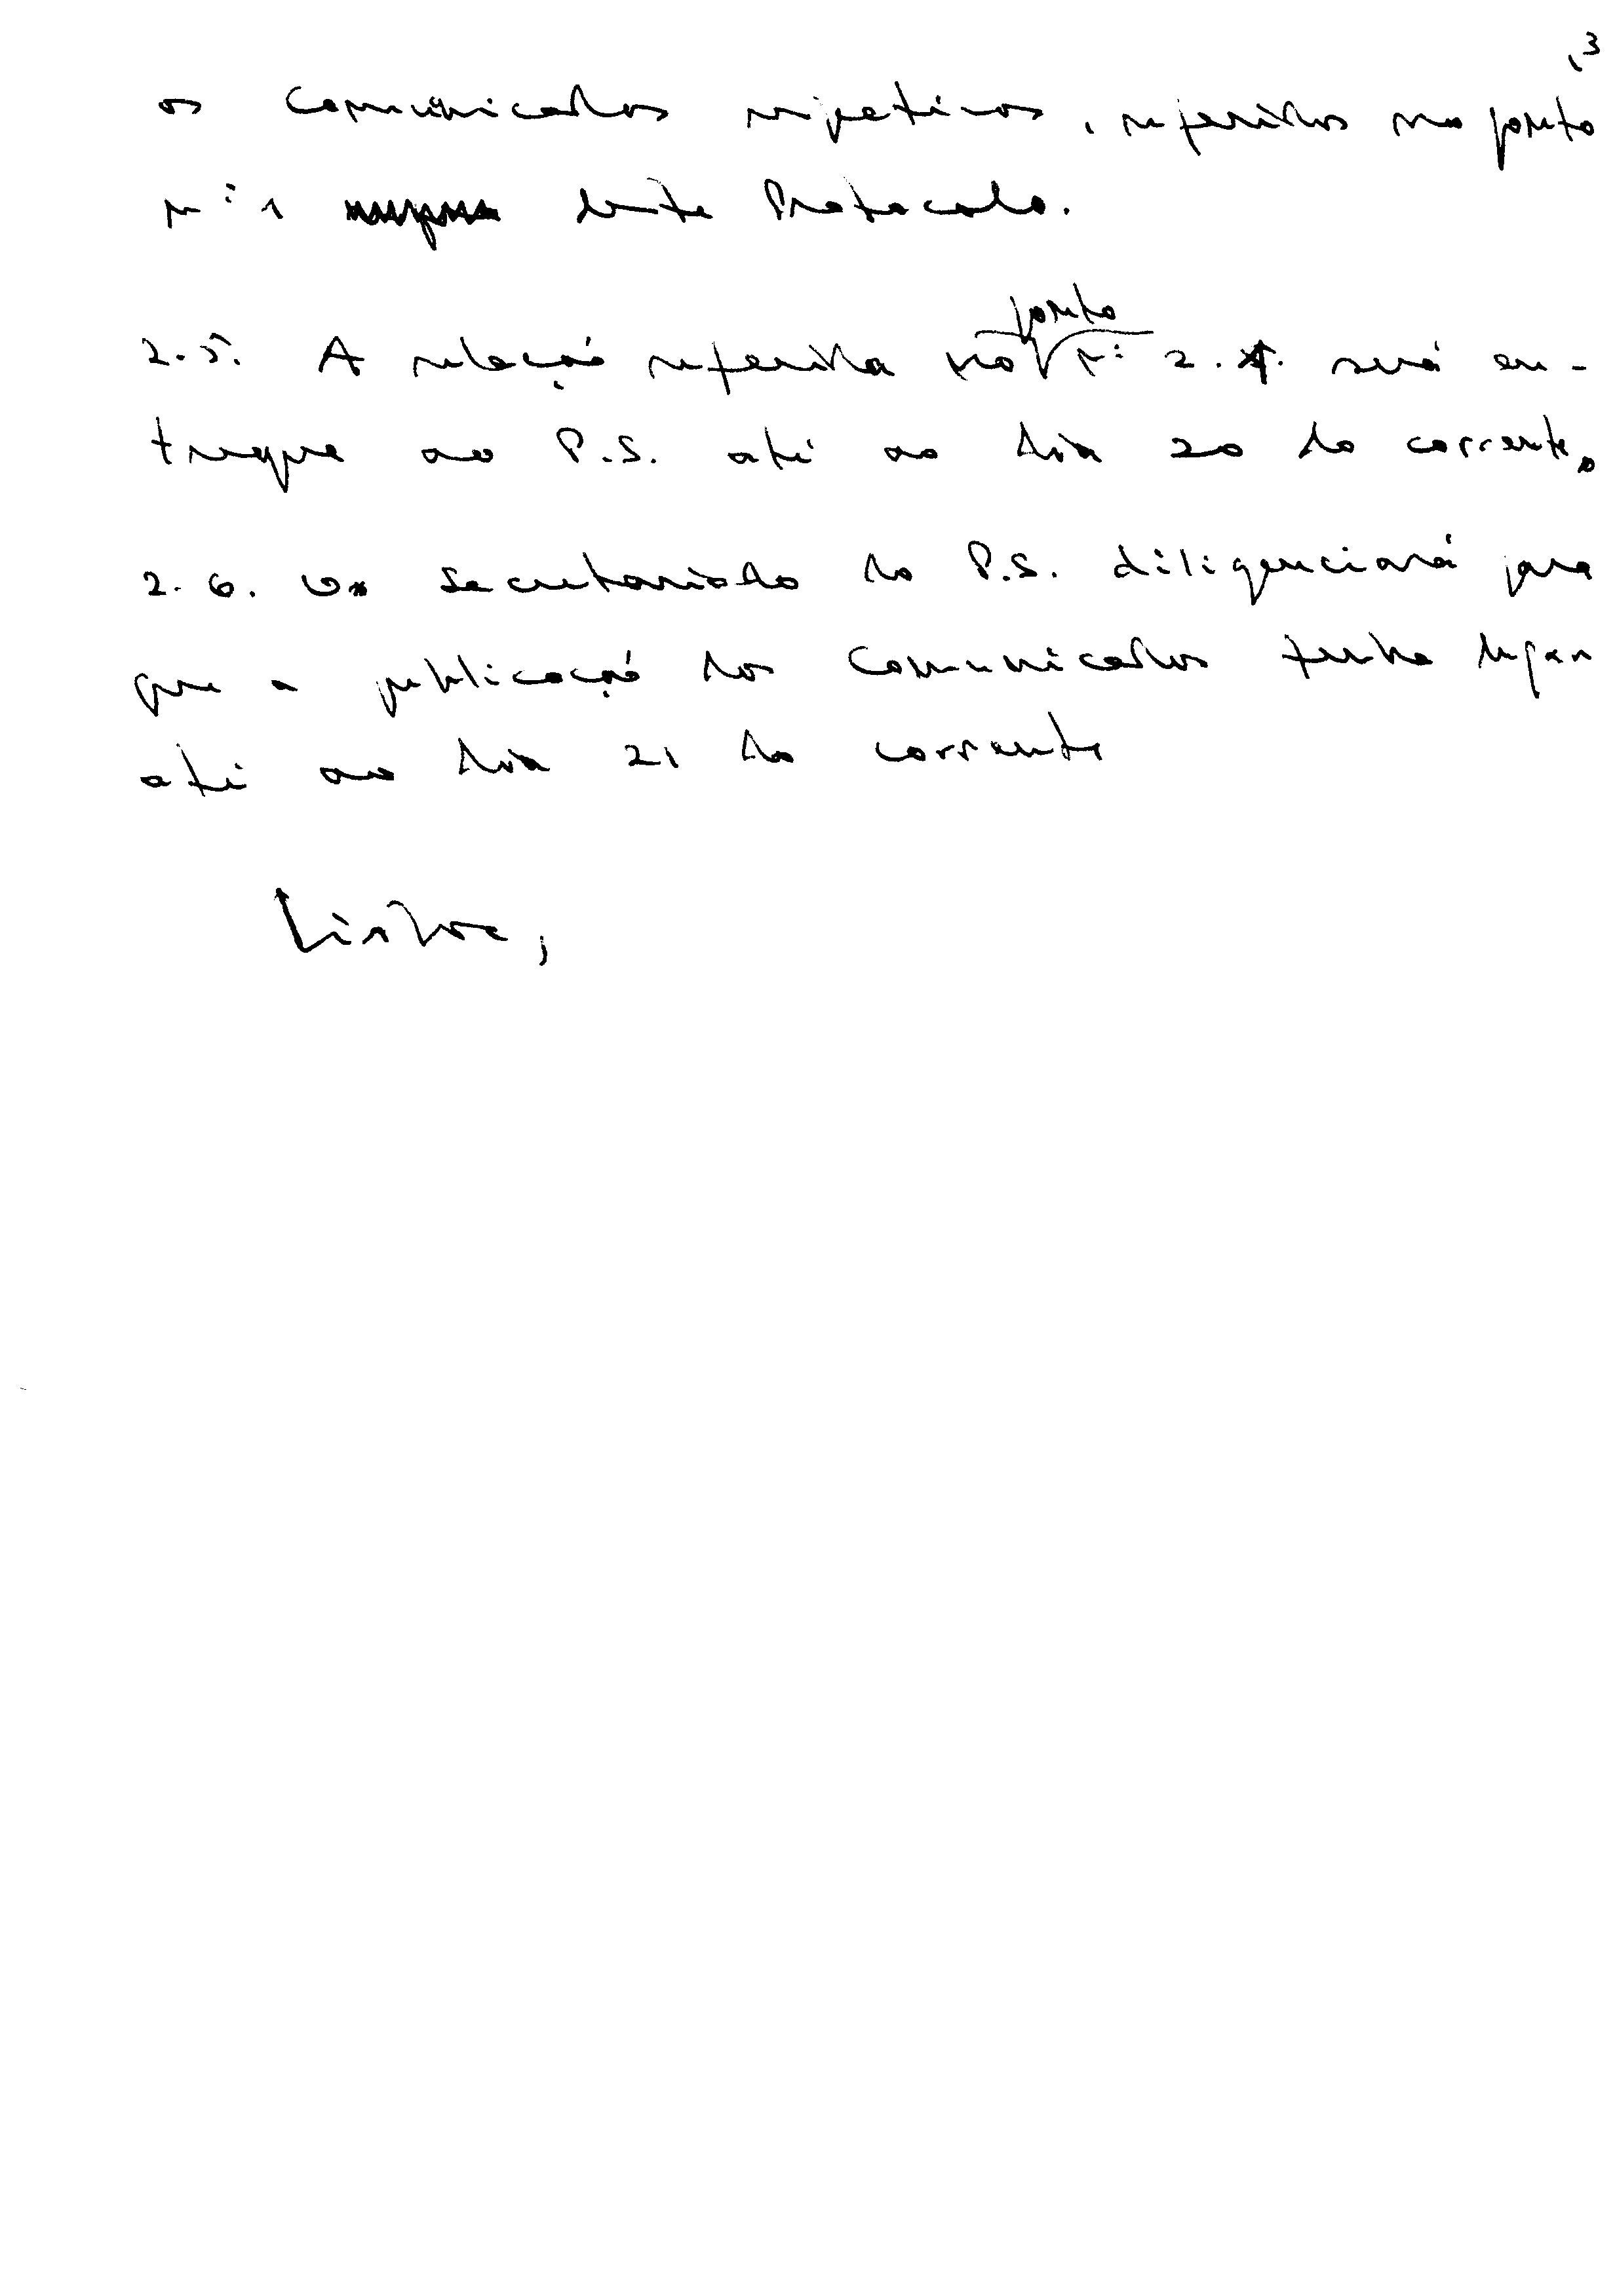 3
os comunicados respetivos, referidos no ponto
nº 1 deste Protocolo.
ponto
2.5. A relação referida no nº 2.4. será en-
tregue ao P.S. até ao dia 20 do corrente.
2.6. O secretariado do P.S. diligenciará para
que a publicação dos comunicados tenha lugar
até ao dia 21 do corrente
Lisboa,